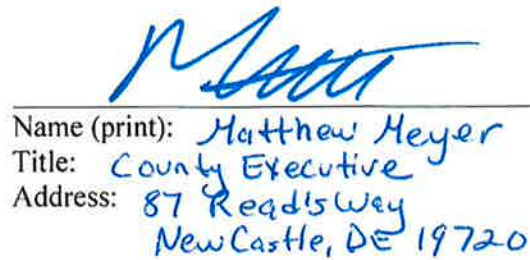 Name (print): Matthew Meyer
Title: County Executive
Address: 87 Read's Way
New Castle, DE 19720